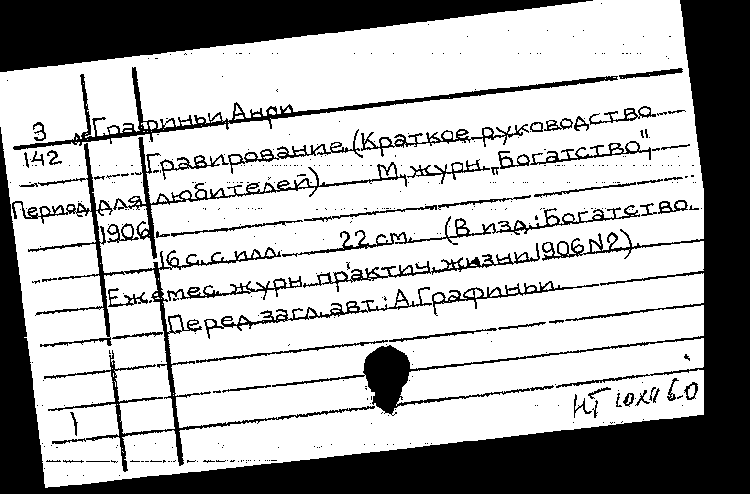 З
142
де Графиньи, Анри
Гравирование. (Краткое руководство
Период. для любителей). М, журн. „Богатство",
1906.
16 с. с илл. 22 cm. (В изд.: Богатство.
Ежемес. журн. практич. жизни. 1906 N2).
Перед загл. авт.: А. Графиньи.
1
НТ